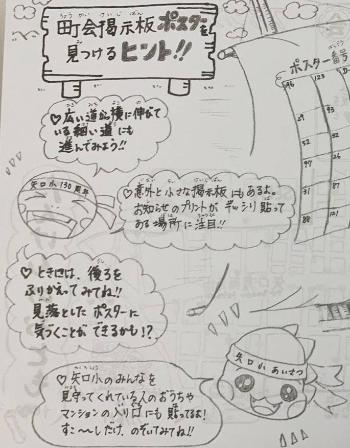 町会掲示板ポスターを
見つけるヒント!!
ポスター番号
♡広い道から横に伸びて
いる細い道にも
進んでみよう!!
矢口小130周年
♡意外と小さな掲示板にもあるよ。
お知らせのプリントがギッシリ貼って
ある場所に注目!!
♡ときには、後ろを
ふりかえってみてね!!
見落としたポスターに
気づくことができるかも!?
矢口小あいさつ
♡矢口小のみんなを
見守ってくれている人のおうちや
マンションの入り口にも貼ってるよ!
すこ〜しだけ、のぞいてみてね!!
96 123
29
52
97 26
31 87
88 121